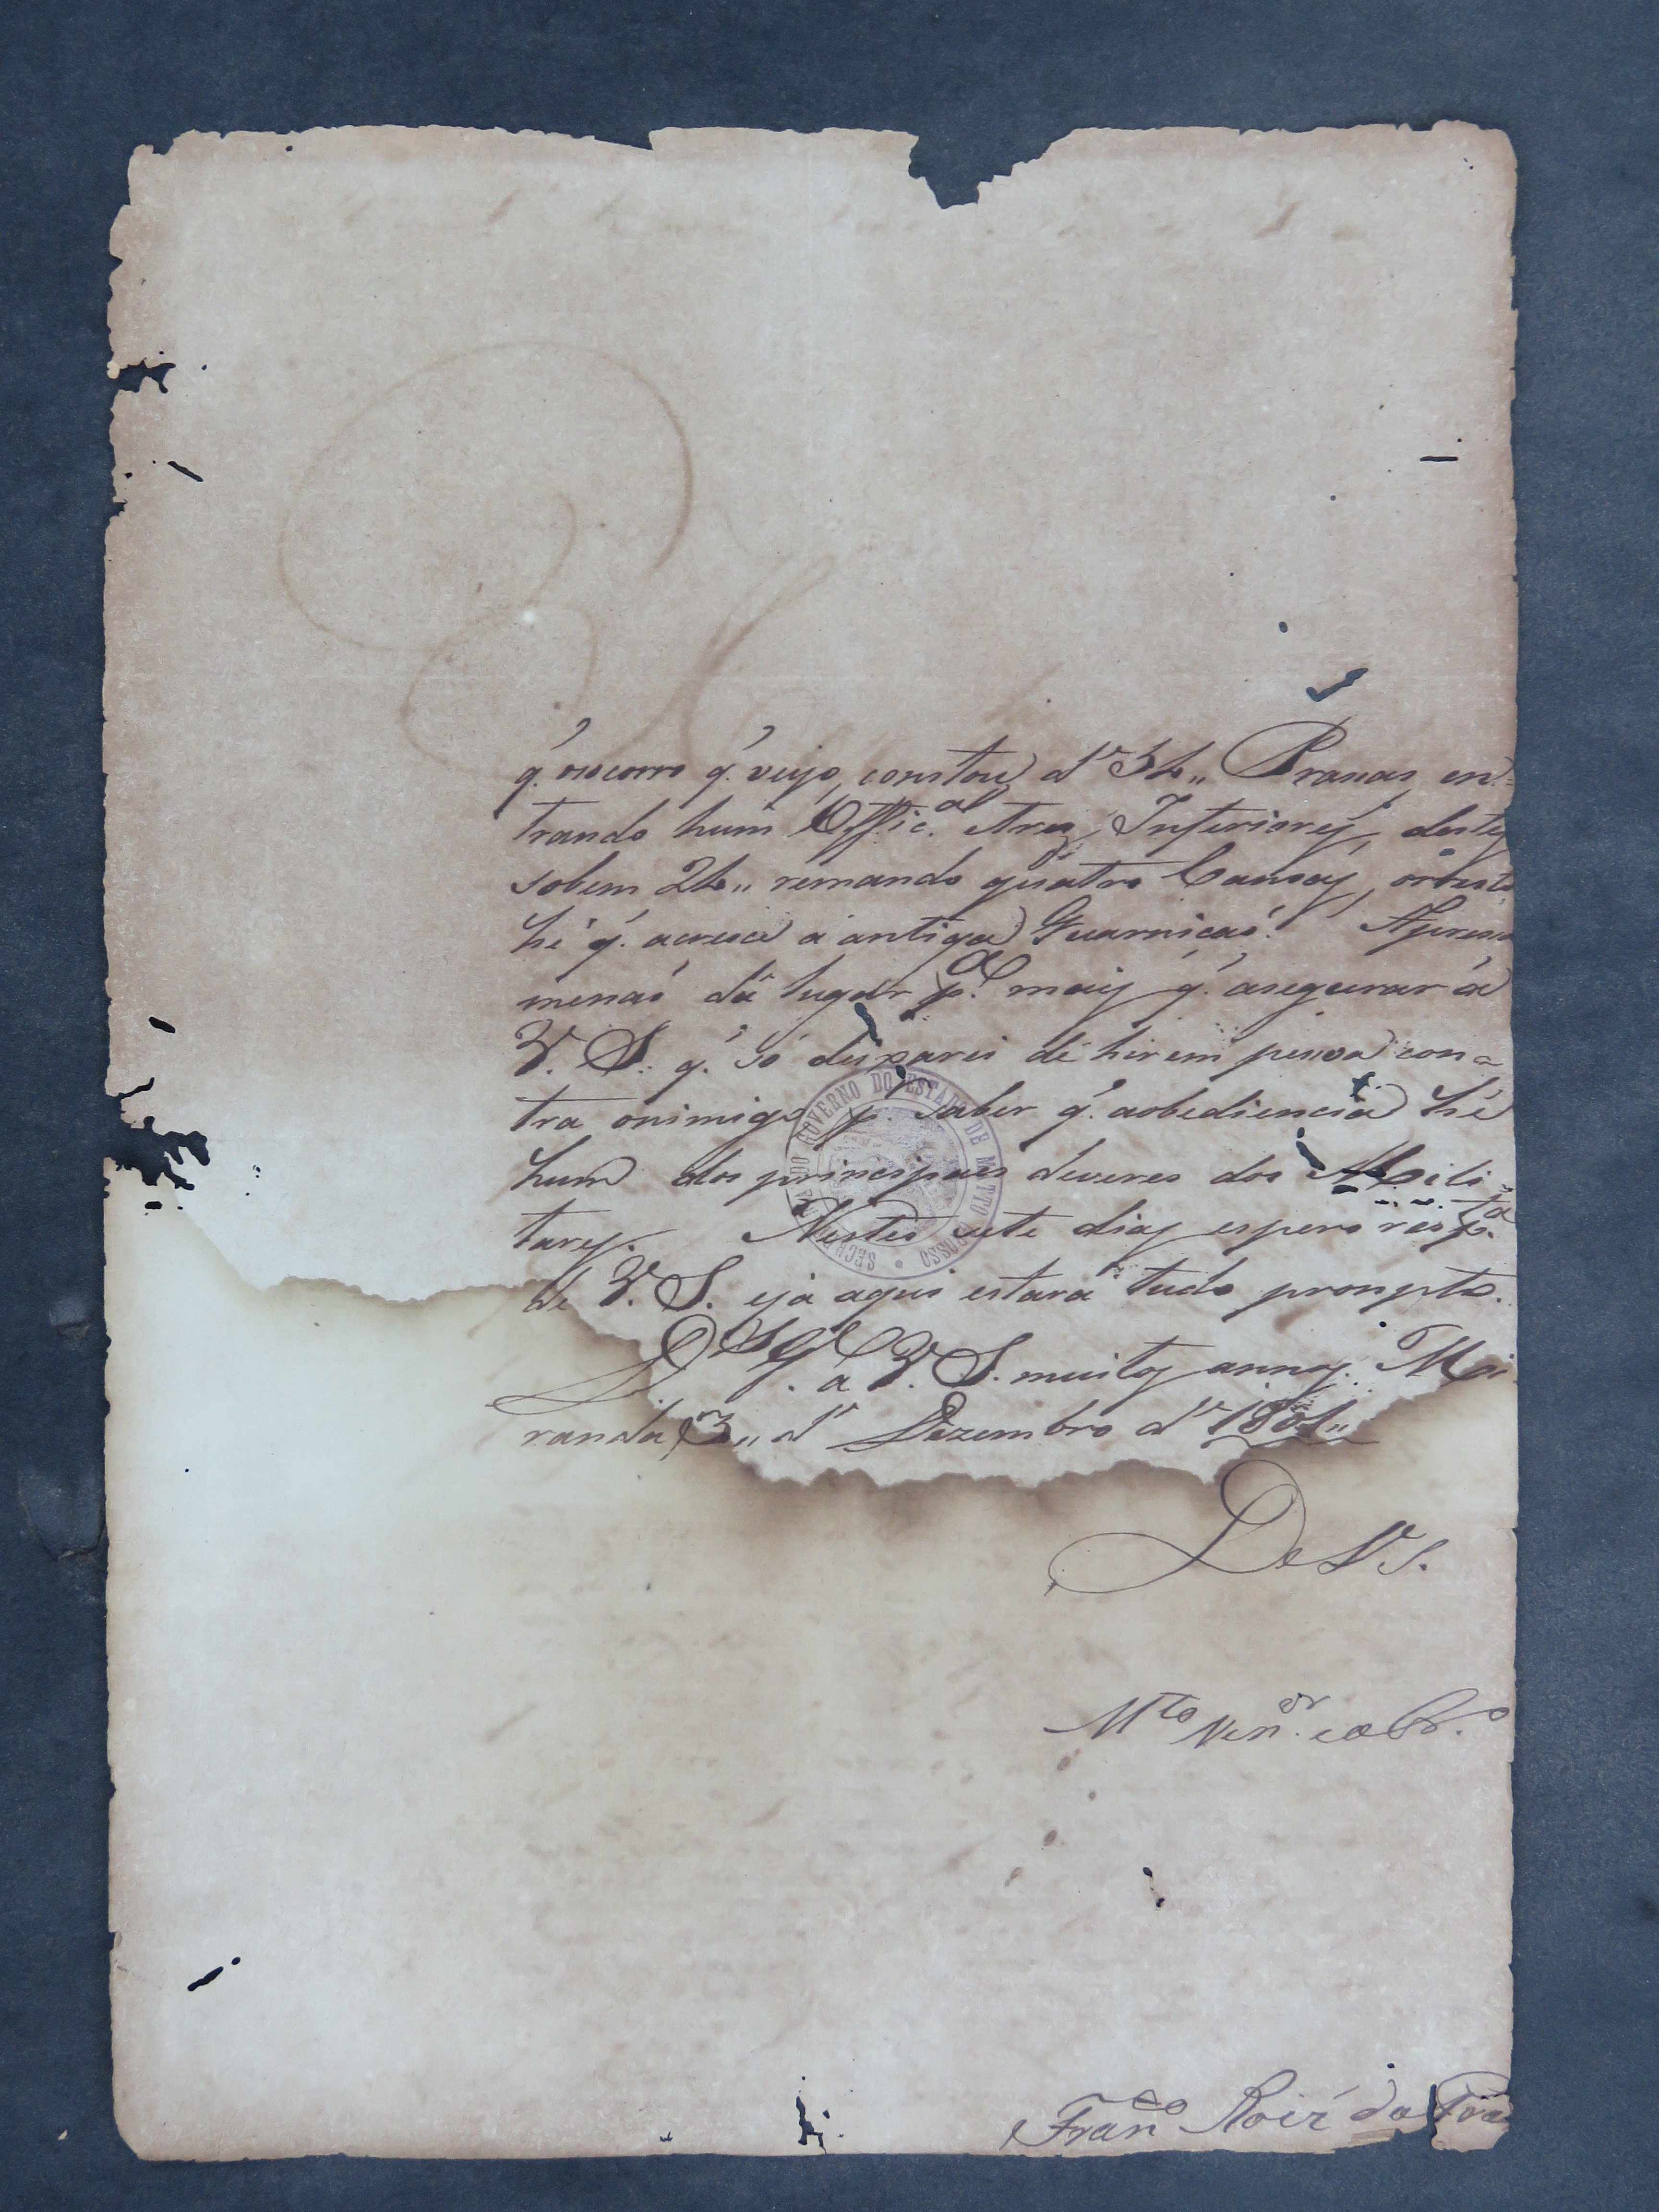 q̃. osocorro q̃. veyo, constou d.e 34,, Prasas, en=
trando hum Offic.al etres Inferiores, destes
sobem 24,, remando quatro Canoas, oresto
hé q̃. acresce á antiga Guarnicaõ.
menaõ dá lugar p.a mais q̃. asegurar á
V. S. q̃. só desparei de hir em pesoa con=
tra onimigo p. saber q̃. aobediencia hé
hum dos principaes deveres dos Mili=
tares. Nestes sete dias espero resp.ta
de V. S. ejá aqui estará tudo prompto.
D.s G.e a V. S. muitos annos. Mi
randa 3,, d.e Dezembro d.e 1801,,
De V S.
M.to Ven.or e a Cr.o
Fran.co Roiz' do
SECRETARIA DO GOVERNO DO ESTADO DE MATTO GROSSO